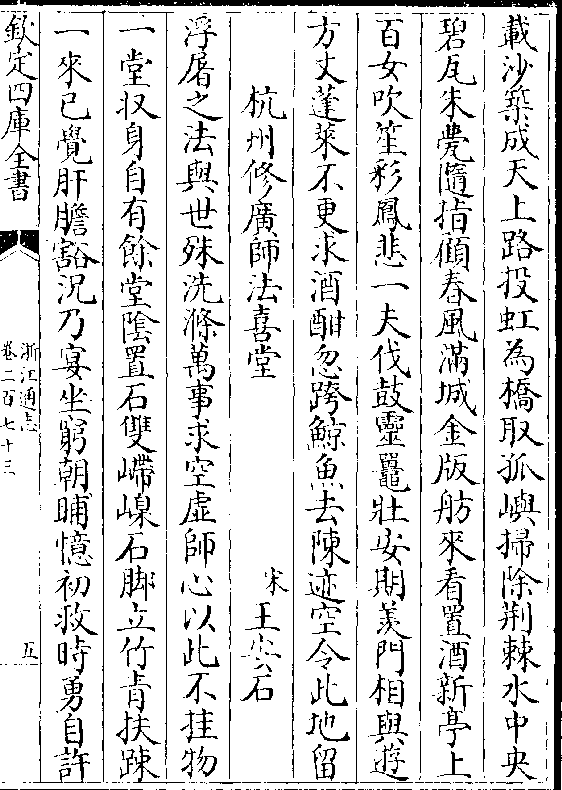 載沙築成天上路投虹為橋取孤嶼掃除荆棘水中央
碧瓦朱甍隨指顧春風滿城金版舫來看置酒新亭上
百女吹笙彩鳳悲一夫伐鼓靈鼉壯安期羡門相與遊
方丈蓬萊不更求酒酣忽跨鯨魚去陳迹空令此地留
杭州修廣師法喜堂 宋王安石
浮屠之法與世殊洗滌萬事求空虛師心以此不挂物
一堂収身自有餘堂陰置石雙嵽嵲石脚立竹青扶踈
一來已覺肝膽豁況乃宴坐窮朝晡憶初救時勇自許
欽定四庫全書
浙江通志
卷二百七十三
五